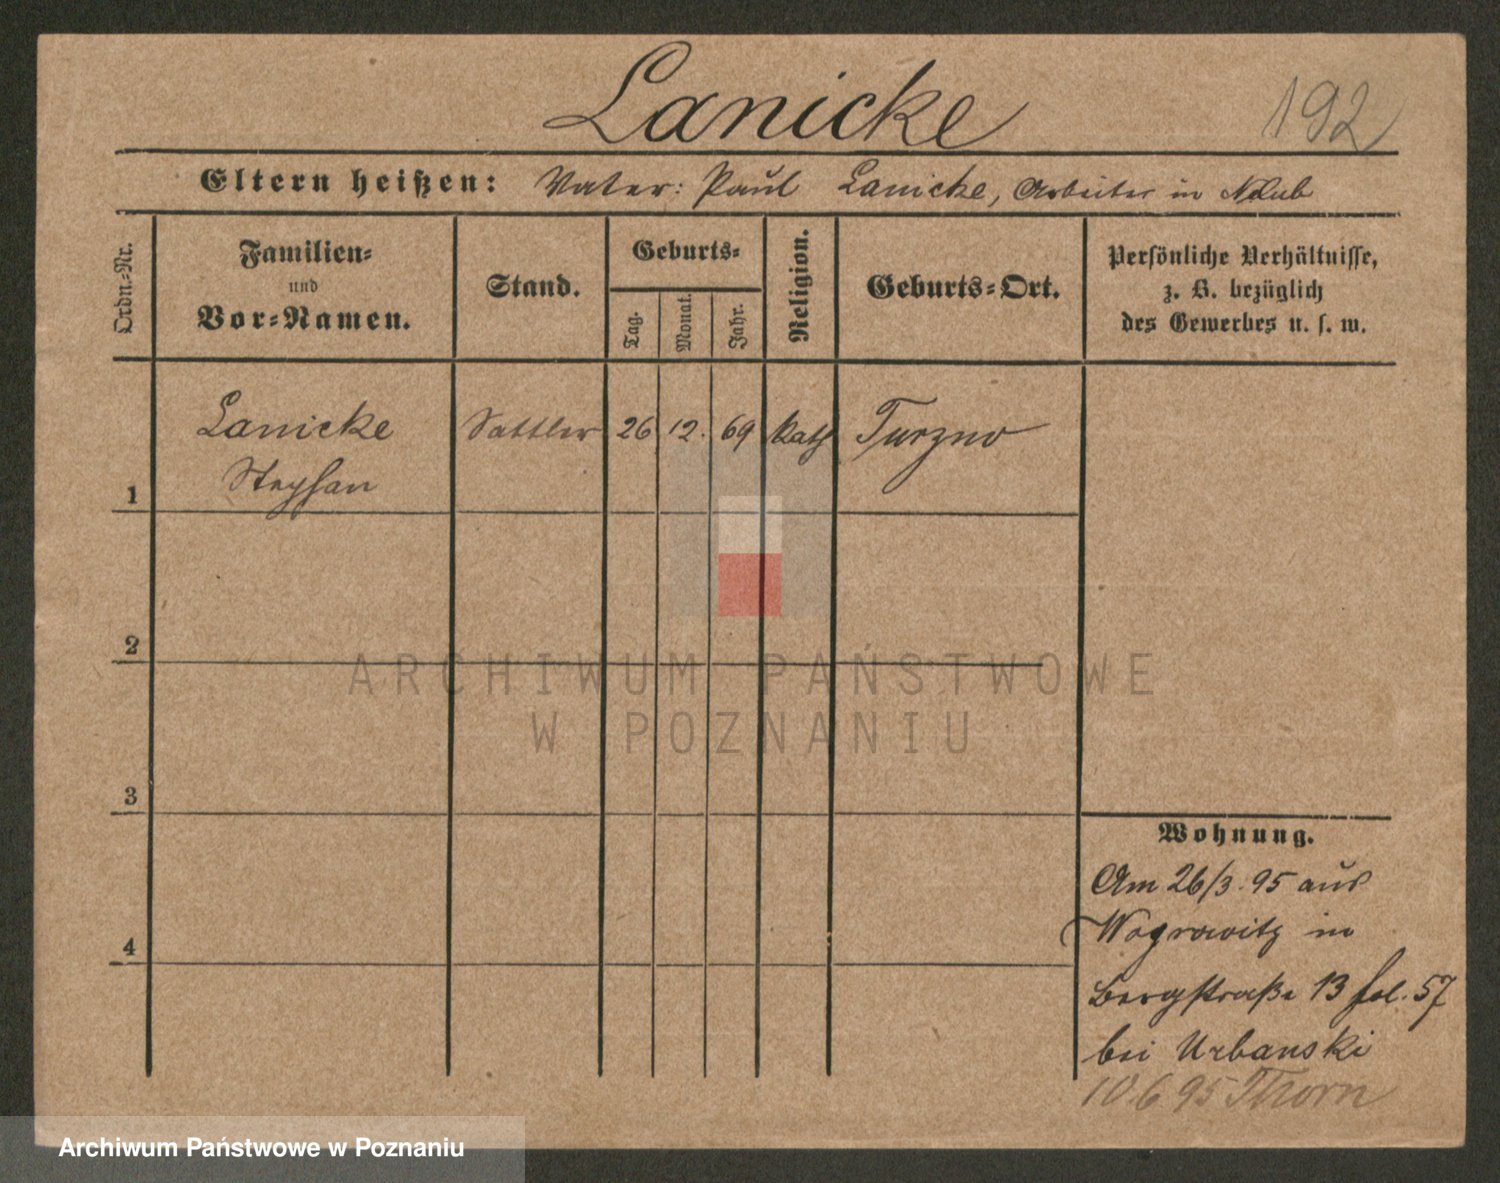 Lanicke
192
Eltern heißen: Vater: Paul Lanicke, Arbeiter in
Ordn.-Nr.
Familien-
und
Vor-Namen.
Stand.
Geburts-
Tag.
Monat.
Jahr.
Religion.
Geburts-Ort.
Persönliche Verhältnisse,
z. B. bezüglich
des Gewerbes u. s. w.
1
Lanicke Sattler 26 12. 69 kath Turzno
Stephan
2
3
4
Wohnung.
Am 26/3. 95 aus
Wogrowitz in
Bergstraße 13 fol. 57
bei Urbanski
10 6 95 Thorn
ARCHIWUM PAŃSTWOWE
W POZNANIU
Archiwum Państwowe w Poznaniu